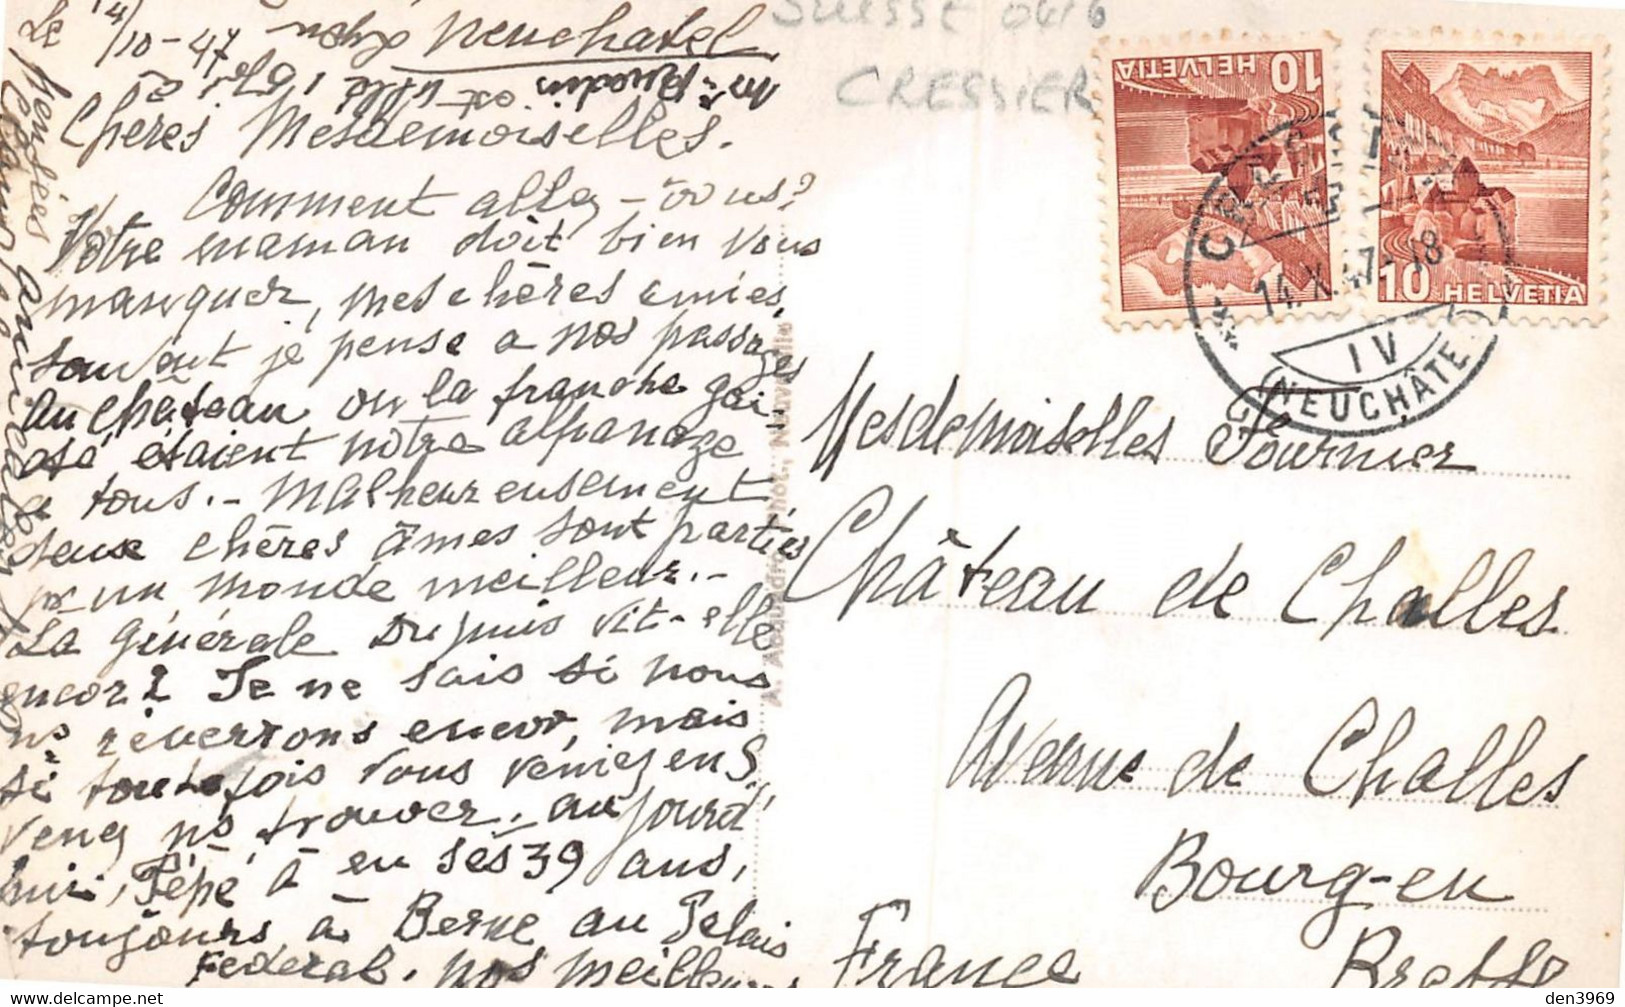 SUISSE 0416
CRESSIER
14/10-47
Neuchatel
Chères Mesdemoiselles.
Comment allez-vous?
Votre maman doit bien vous
manquer, mes chères amies,
souvent je pense a nos passages
au château ou la franche gai-
eté étaient notre alpanage
a tous.- Malheureusement
deux chères âmes sont parties
pr un monde meilleur.-
La générale Dupuis vit-elle
encor? Je ne sais si nous
ns reverrons encor, mais
si toutefois vous veniez en S,
venez ns trouver, aujourd'
hui, Pépé à eu ses 39 ans,
toujours à Berne au Palais
Federal. nos meilleurs
A. Acquadro phot., Neuveville
HELVETIA 10
10 HELVETIA
14.X.47-18
IV
(NEUCHÂTEL)
Mesdemoiselles Fournier
Château de Challes
Avenue de Challes
Bourg-en
France Bresse
den3969